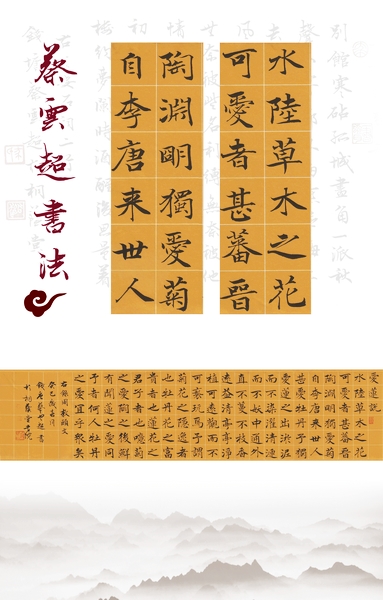 蔡雲超書法
水陸草木之花
可愛者甚蕃晉
陶淵明獨愛菊
自李唐来世人
别館寒砧孤城畫角一派秋
愛蓮說
水陸草木之花
可愛者甚蕃晉
陶淵明獨愛菊
自李唐来世人
甚愛牡丹予獨
愛蓮之出淤泥
而不染濯清漣
而不妖中通外
直不蔓不枝香
遠益清亭亭淨
植可遠觀而不
可褻玩焉予謂
菊花之隱逸者
也牡丹花之富
貴者也蓮花之
君子者也噫菊
之愛陶之後鮮
有聞蓮之愛同
予者何人牡丹
之愛宜乎眾矣
右錄周敦頤文